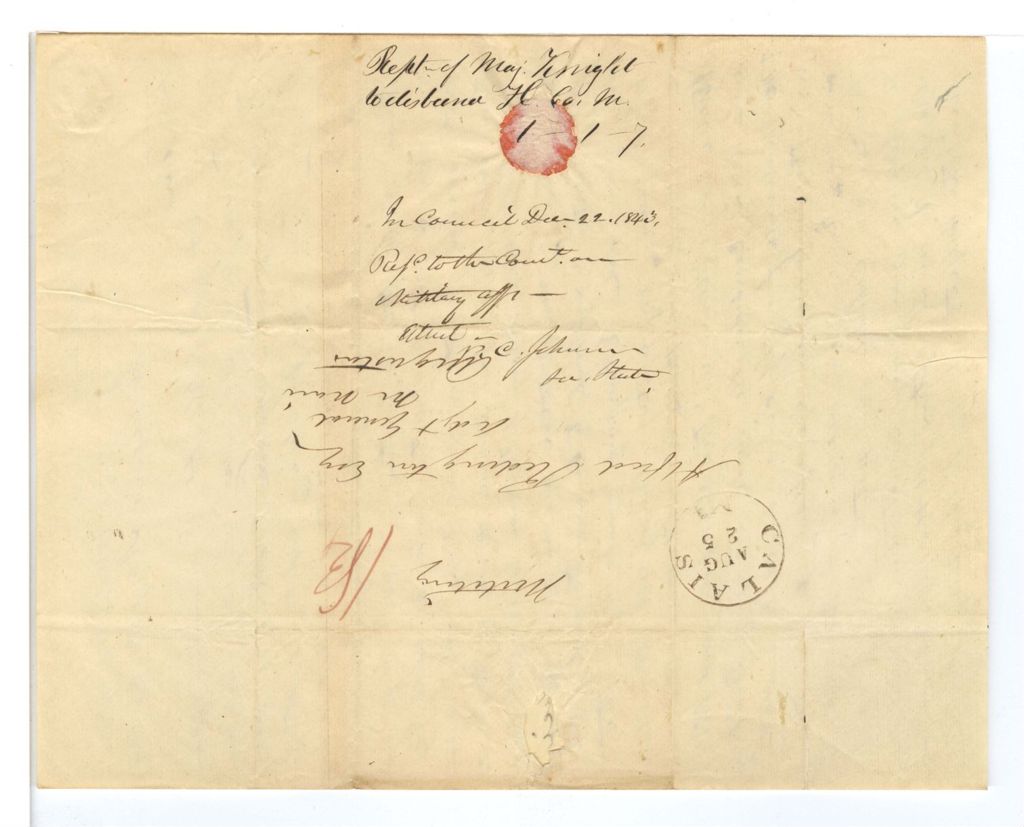 Rept. of Maj. Knight
to disband H. Co. M.
1 – 1 – 7.
In Council Dec. 22. 1843.
Refd. to the Comt. on
Military affs –
Attest –
P. C. Johnson
Sec. State.
Military
Alfred Redington Esq
Adjt General
Augusta
CALAIS
AUG
25